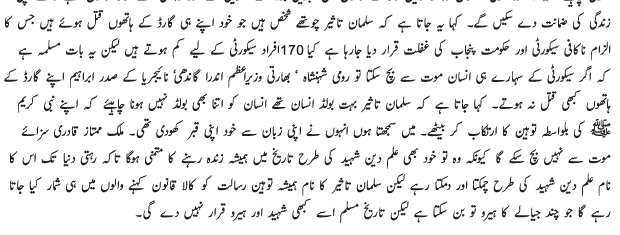 زندگی کی ضمانت دے سکیں گے۔ کہا یہ جاتا ہے کہ سلمان تاثیر چوتھے شخص ہیں جو خود اپنے ہی گارڈ کے ہاتھوں قتل ہوئے ہیں جس کا
الزام ناکافی سیکورٹی اور حکومت پنجاب کی غفلت قرار دیا جارہا ہے کیا 170افراد سیکورٹی کے لیے کم ہوتے ہیں لیکن یہ بات مسلمہ ہے
کہ اگر سیکورٹی کے سہارے ہی انسان موت سے بچ سکتا تو رومی شہنشاہ ‘ بھارتی وزیراعظم اندرا گاندھی‘ نائیجریا کے صدر ابراہیم اپنے گارڈ کے
ہاتھوں کبھی قتل نہ ہوتے۔ کہا جاتا ہے کہ سلمان تاثیر بہت بولڈ انسان تھے انسان کو اتنا بھی بولڈ نہیں ہونا چاہئے کہ اپنے نبی کریم
ﷺ کی بلواسطہ توہین کا ارتکاب کر بیٹھے۔ میں سمجھتا ہوں انہوں نے اپنی زبان سے خود اپنی قبر کھودی تھی۔ ملک ممتاز قادری سزائے
موت سے نہیں بچ سکے گا کیونکہ وہ تو خود بھی علم دین شہید کی طرح تاریخ میں ہمیشہ زندہ رہنے کا متمنی ہوگا تاکہ رہتی دنیا تک اس کا
نام علم دین شہید کی طرح چمکتا اور دمکتا رہے لیکن سلمان تاثیر کا نام ہمیشہ توہین رسالت کو کالا قانون کہنے والوں میں ہی شمار کیا جاتا
رہے گا جو چند جیالے کا ہیرو تو بن سکتا ہے لیکن تاریخ مسلم اسے کبھی شہید اور ہیرو قرار نہیں دے گی۔